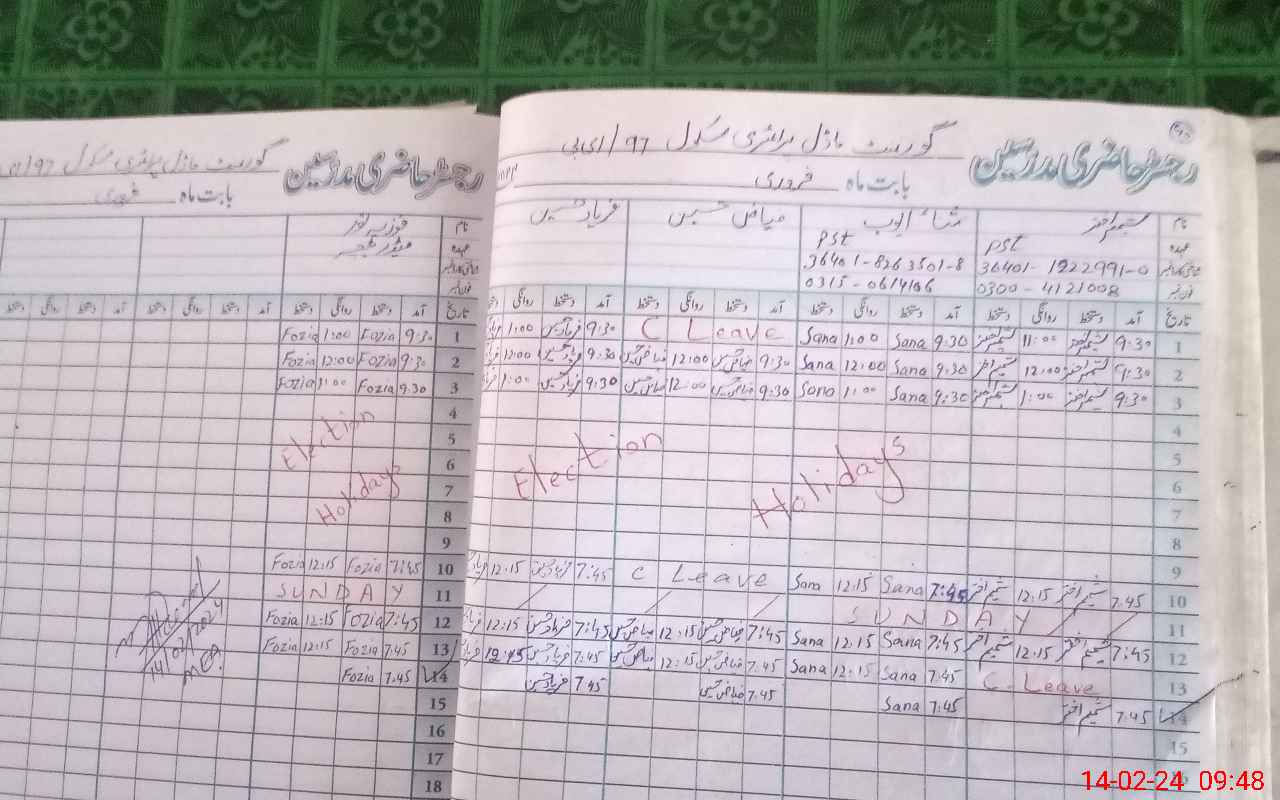 رجسٹر حاضری مدرسین گورنمنٹ ماڈل پرائمری سکول 97/ای بی
بابت ماہ فروری
نام شمیم اختر ثناء ایوب فیاض حسین فریاد حسین
عہدہ PST PST
36401-1222991-0 36401-8263501-8
فون نمبر 0300-4121008 0315-0614106
تاریخ آمد دستخط روانگی دستخط آمد دستخط روانگی دستخط آمد دستخط روانگی دستخط آمد دستخط روانگی
1 9:30 شمیم اختر 11:00 شمیم اختر 9:30 Sana 1:00 Sana C Leave 9:30 فریاد حسین 1:00
2 9:30 شمیم اختر 12:00 شمیم اختر 9:30 Sana 12:00 Sana 9:30 فیاض حسین 12:00 فیاض حسین 9:30 فریاد حسین 12:00
3 9:30 شمیم اختر 1:00 شمیم اختر 9:30 Sana 1:00 Sana 9:30 فیاض حسین 12:00 فیاض حسین 9:30 فریاد حسین 1:00
4
5
Election Holidays
6
7
8
9
10 7:45 شمیم اختر 12:15 شمیم اختر 7:45 Sana 12:15 Sana C Leave 7:45 فریاد حسین 12:15
11 SUNDAY
12 7:45 شمیم اختر 12:15 شمیم اختر 7:45 Sana 12:15 Sana 7:45 فیاض حسین 12:15 فیاض حسین 7:45 فریاد حسین 12:15
13 C-Leave 7:45 Sana 12:15 Sana 7:45 فیاض حسین 12:15 فیاض حسین 7:45 فریاد حسین 12:45
14 7:45 شمیم اختر 7:45 Sana 7:45 فیاض حسین 7:45 فریاد حسین
15
رجسٹر حاضری مدرسین گورنمنٹ ماڈل پرائمری سکول 97
بابت ماہ فروری
نام فوزیہ نور
عہدہ
فون نمبر
تاریخ آمد دستخط روانگی دستخط آمد دستخط روانگی دستخط آمد دستخط روانگی دستخط
1 9:30 Fozia 1:00 Fozia
2 9:30 Fozia 12:00 Fozia
3 9:30 Fozia 1:00 Fozia
4
5
Election
6
7
Holidays
8
9
10 7:45 Fozia 12:15 Fozia
11 SUNDAY
12 7:45 Fozia 12:15 Fozia
13 7:45 Fozia 12:15 Fozia
14 7:45 Fozia
15
16
17
18
14/02/2024
MEA
14-02-24 09:48